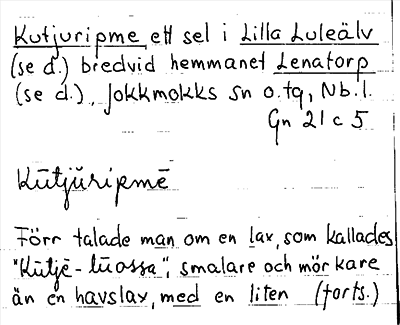 Kutjuripme, ett sel i Lilla Luleälv
(se d.) bredvid hemmanet Lenatorp
(se d.), Jokkmokks sn o. tg, Nb. l.
Gn 21 c 5
Kūtjŭripmē
Förr talade man om en lax, som kallades
"Kūtjē-lūossa", smalare och mörkare
än en havslax, med en liten (forts.)